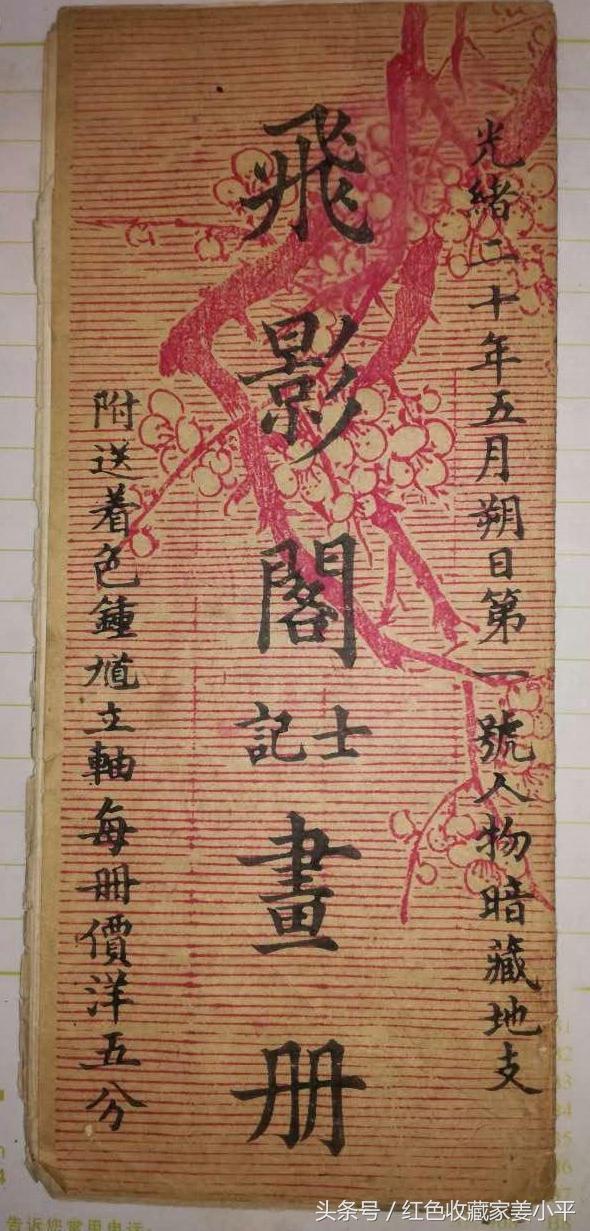 光緒二十年五月朔日第一號人物暗藏地支
飛影閣士記畫册
附送着色鍾馗立軸每冊價洋五分
告诉您常用电话:
头条号 / 红色收藏家姜小平